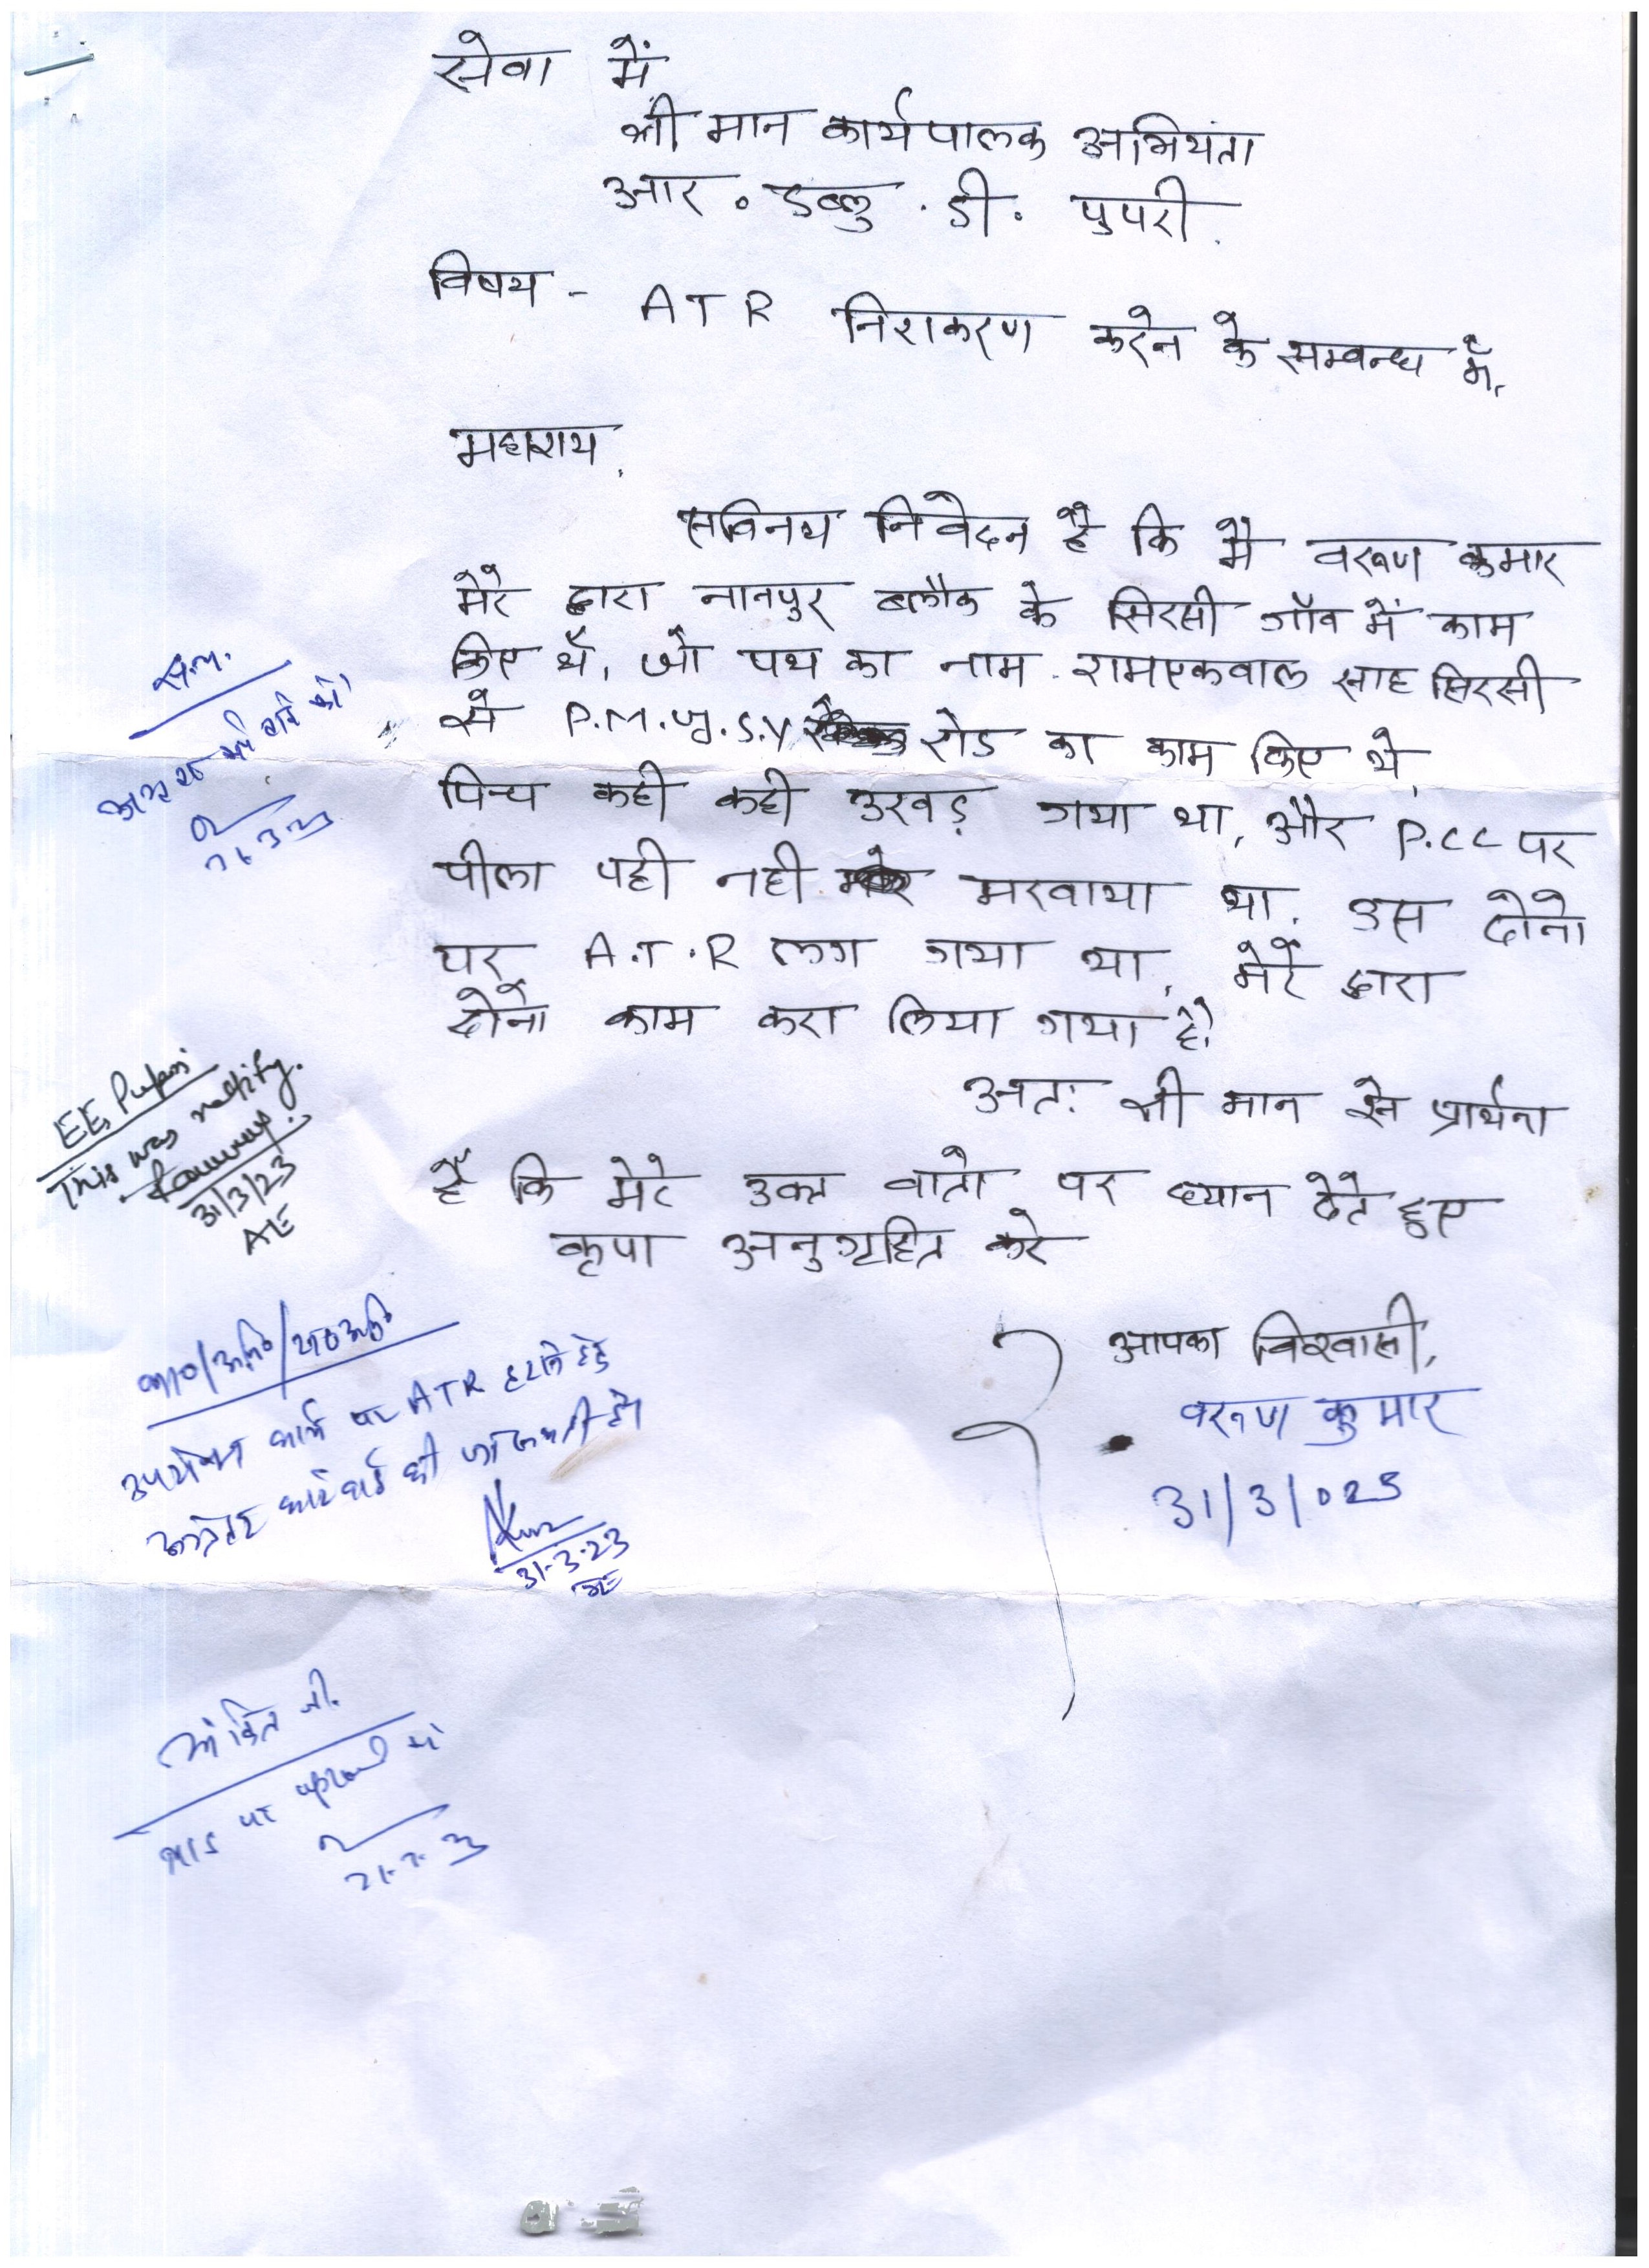 सेवा में
श्री मान कार्यपालक अभियंता
आर. डब्लु. डी. पुपरी.
विषय - ATR निराकरण करने के सम्बन्ध में,
महाशय,
सविनय निवेदन है कि मै वरूण कुमार
मेरे द्वारा नानपुर ब्लौक के सिरसी गाँव में काम
किए थें, जो पथ का नाम रामएकवाल साह सिरसी
से P.M.G.S.Y रोड का काम किए थे,
पिच कही कही उखड़ गया था, और P.CC पर
पीला पट्टी नही मरवाया था. उस दोनो
पर A.T.R लग गया था, मेरे द्वारा
दोनो काम करा लिया गया है।
अतः श्री मान से प्रार्थना
है कि मेरे उक्त वातो पर ध्यान देते हुए
कृपा अनुग्रहित करे
आपका विश्वासी,
वरूण कुमार
31/3/023
EE, Pupri
This was rectify.
31/3/23
AE
उपरोक्त कार्य पर ATR हटाने हेतु
अग्रेतर कार्रवाई की जा सकती है।
31.3.23
अंकित जी.